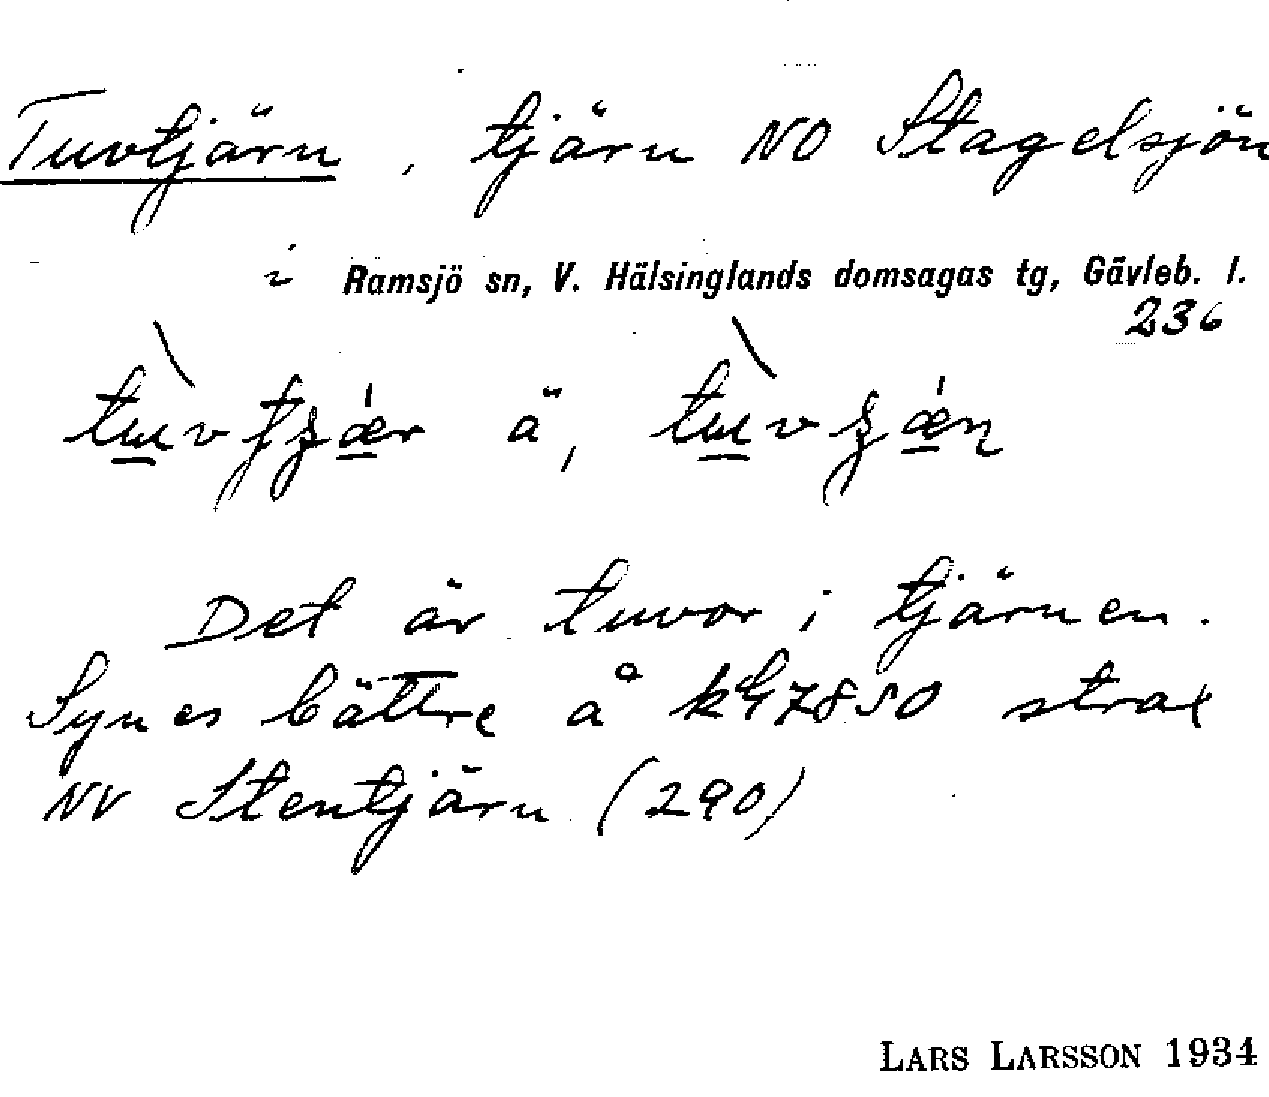 Tuvtjärn, tjärn NO Stagelsjön
i Ramsjö sn, V. Hälsinglands domsagas tg, Gävleb. l.
236
ä,
Det är tuvor i tjärnen.
Synes bättre å 7850 strax
NV Stentjärn (290)
LARS LARSSON 1934